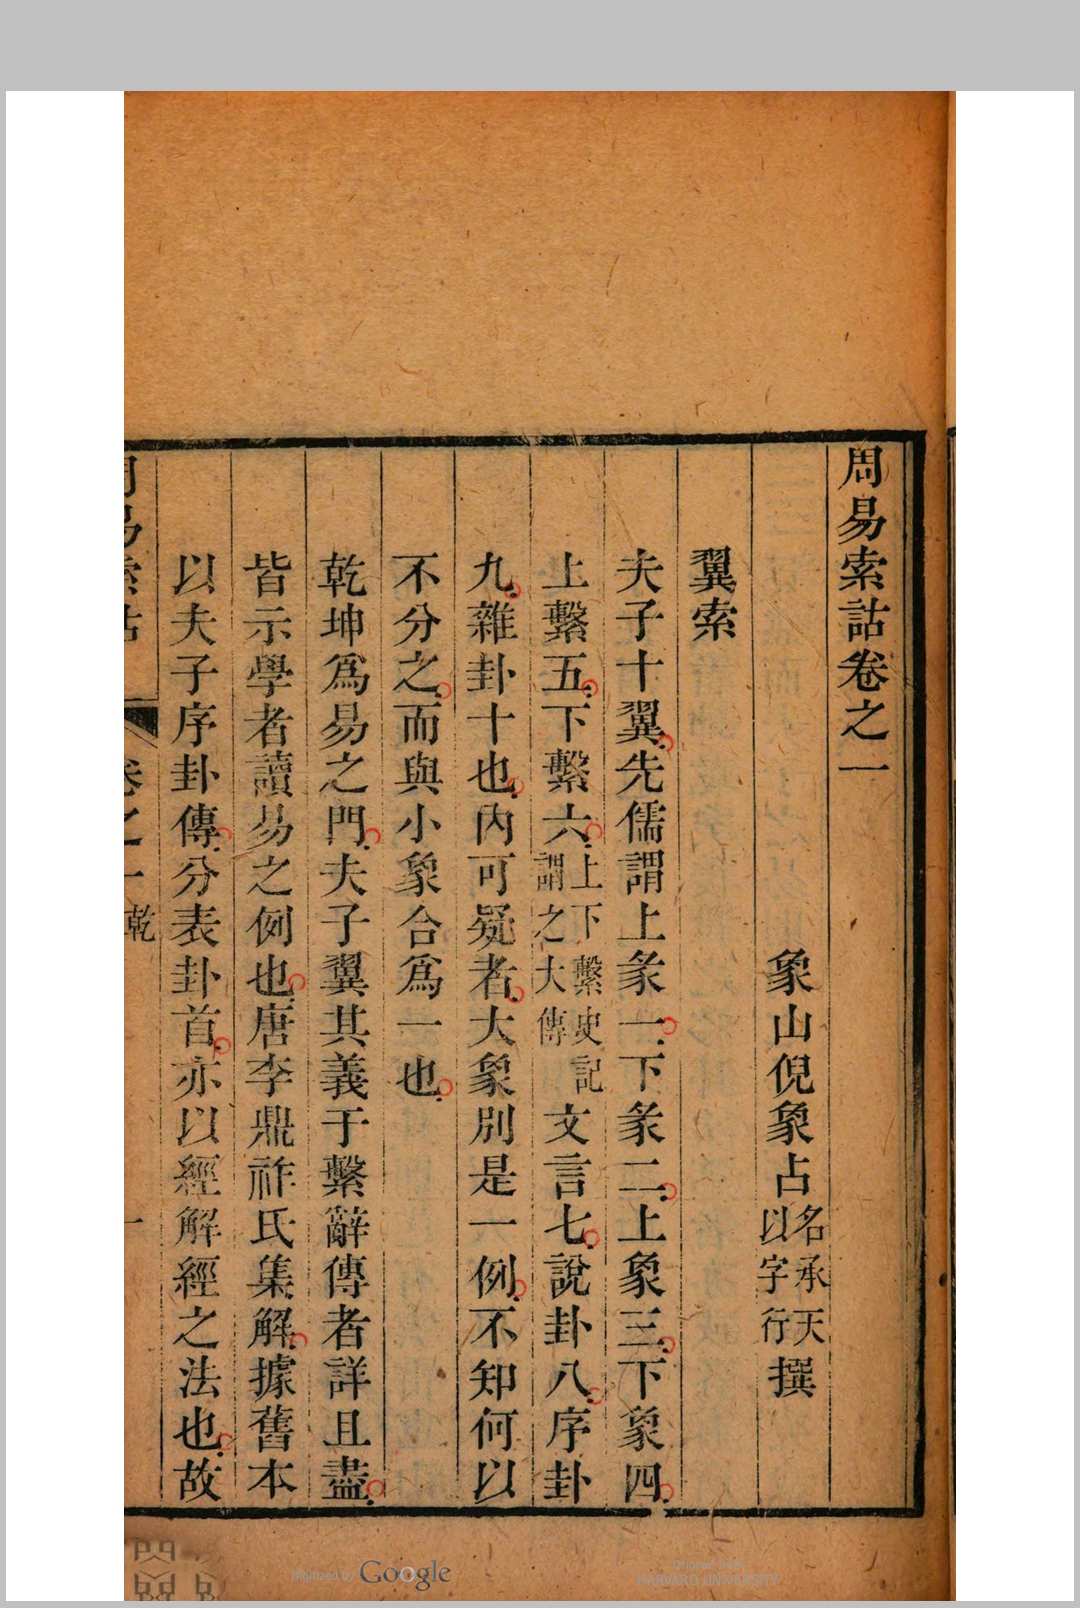 周易索詁卷之一
象山倪象占名承天以字行撰
翼索
夫子十翼先儒謂上彖一下彖二上象三下象四
上繫五下繫六上下繫史記謂之大傳文言七說卦八序卦
九雜卦十也內可疑者大象別是一例不知何以
不分之而與小象合爲一也
乾坤爲易之門夫子翼其義于繫辭傳者詳且盡
皆示學者讀易之例也唐李鼎祚氏集解據舊本
以夫子序卦傳分表卦首亦以經解經之法也故
周易索詁
卷之一 乾
一
Digitized by Google
Original from
HARVARD UNIVERSITY